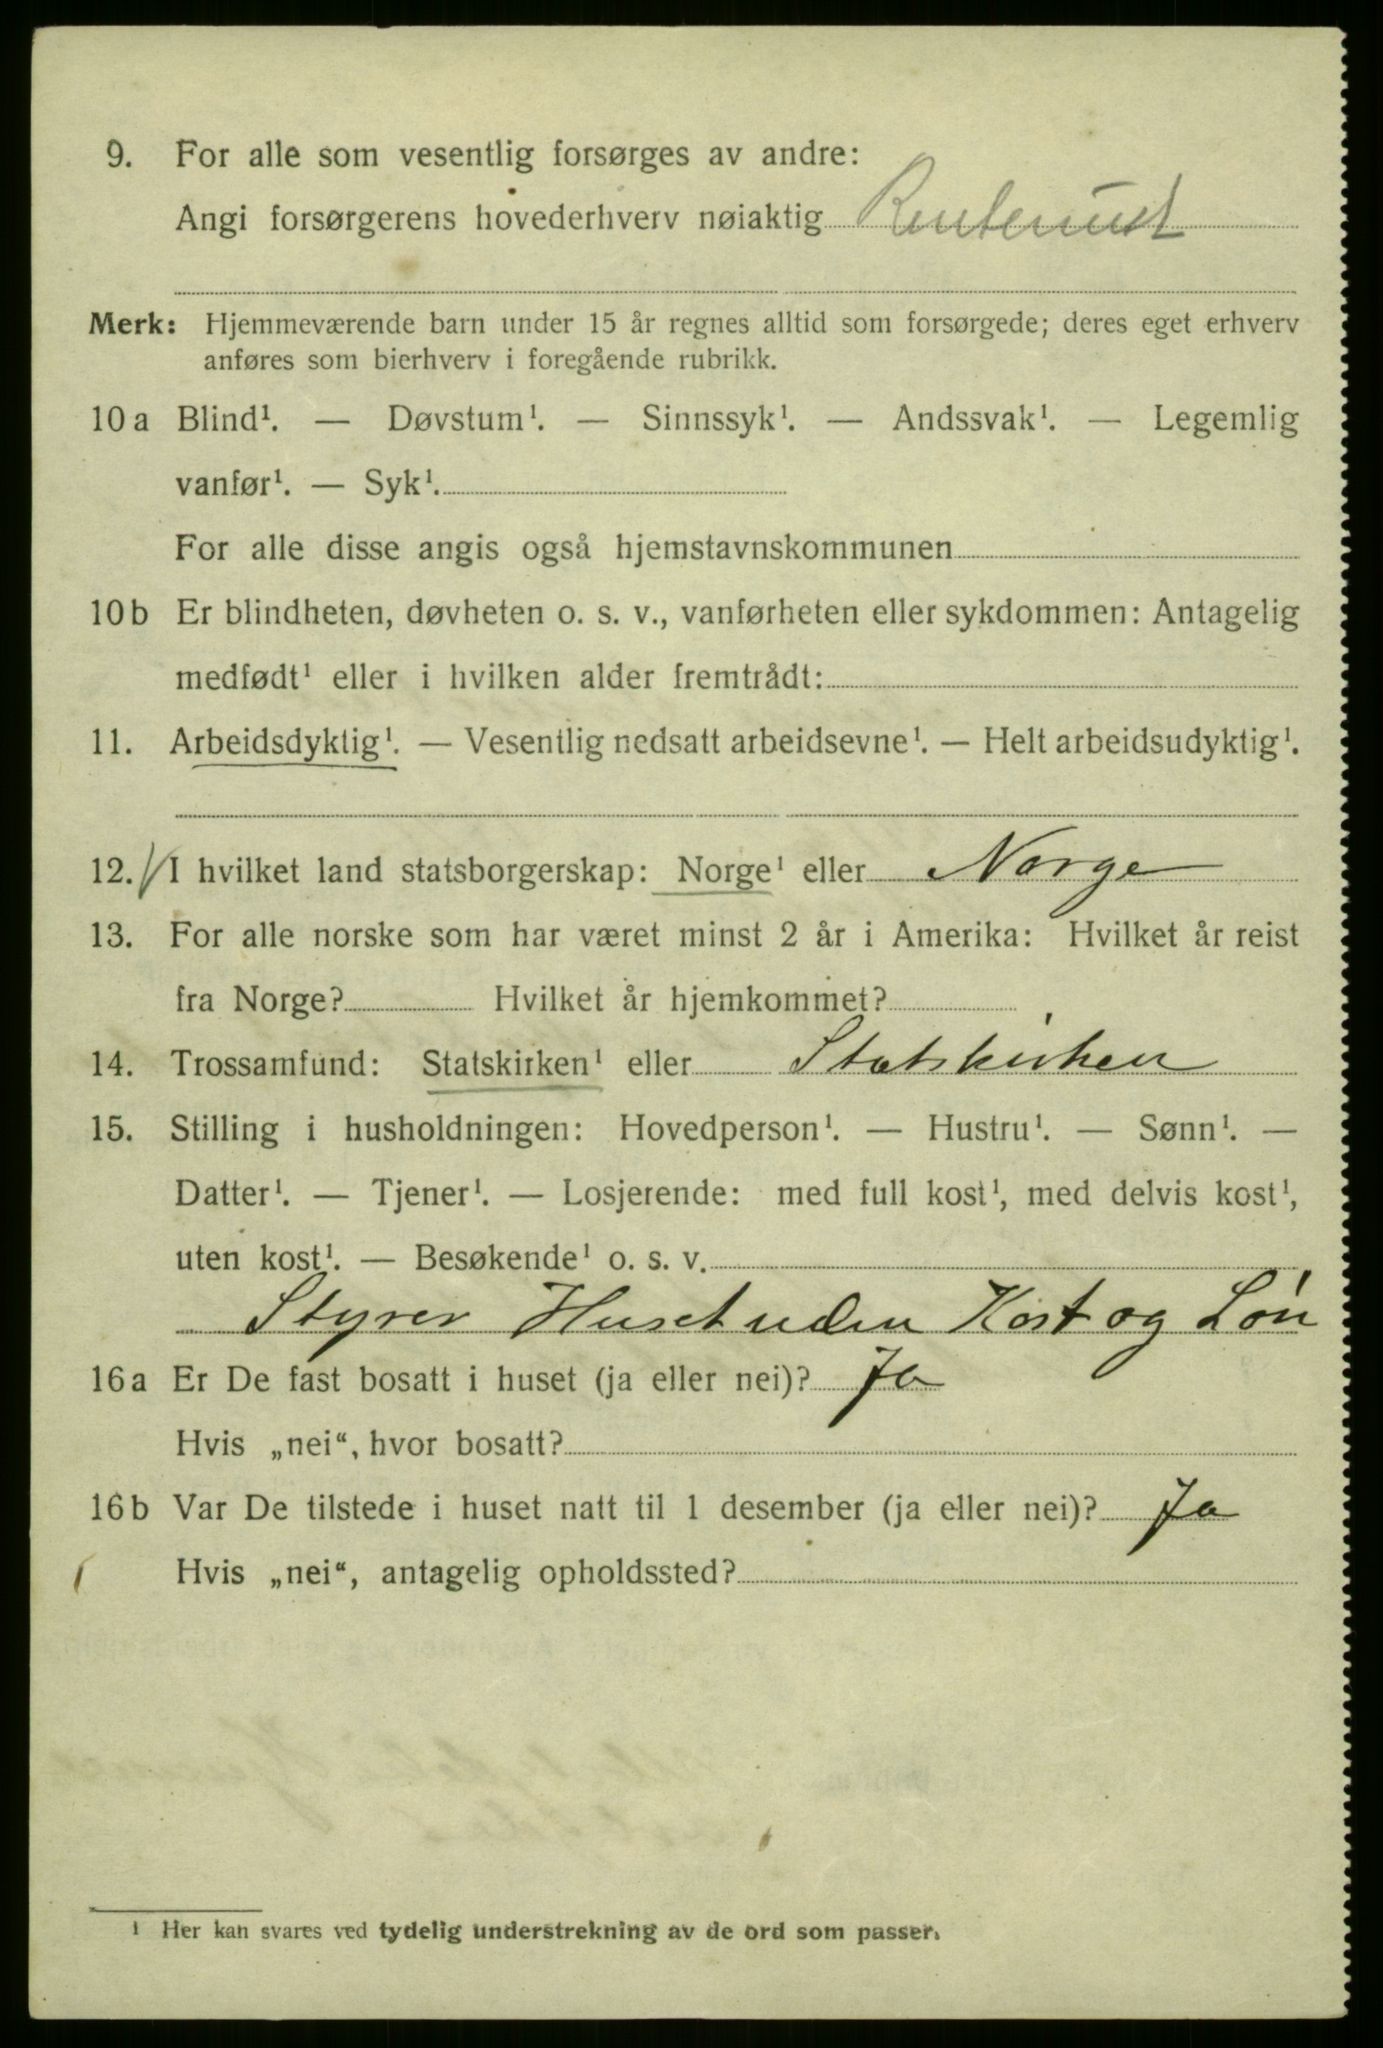 9. For alle som vesentlig forsørges av andre:
Angi forsørgerens hovederhverv nøiaktig
Merk: Hjemmeværende barn under 15 år regnes alltid som forsørgede; deres eget erhverv
anføres som bierhverv i foregående rubrikk.
10 a Blind¹. — Døvstum¹. — Sinnssyk¹. — Andssvak¹. — Legemlig
vanfør¹. — Syk¹.
For alle disse angis også hjemstavnskommunen
10 b Er blindheten, døvheten o. s. v., vanførheten eller sykdommen: Antagelig
medfødt¹ eller i hvilken alder fremtrådt:
11. Arbeidsdyktig¹. — Vesentlig nedsatt arbeidsevne¹. — Helt arbeidsudyktig¹.
12. I hvilket land statsborgerskap: Norge¹ eller Norge
13. For alle norske som har været minst 2 år i Amerika: Hvilket år reist
fra Norge? Hvilket år hjemkommet?
14. Trossamfund: Statskirken¹ eller Statskirken
15. Stilling i husholdningen: Hovedperson¹. — Hustru¹. — Sønn¹. —
Datter¹. — Tjener¹. — Losjerende: med full kost¹, med delvis kost¹,
uten kost¹. — Besøkende¹ o. s. v.
Styrer Huset uden Kost og Løn
16 a Er De fast bosatt i huset (ja eller nei)? Ja
Hvis „nei“, hvor bosatt?
16 b Var De tilstede i huset natt til 1 desember (ja eller nei)? Ja
Hvis „nei“, antagelig opholdssted?
¹ Her kan svares ved tydelig understrekning av de ord som passer.